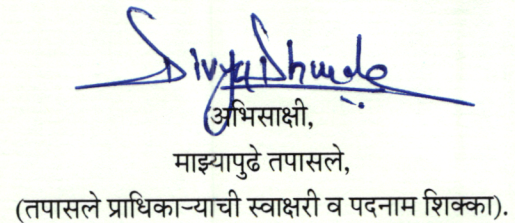 Divya Dhude
अभिसाक्षी,
माझ्यापुढे तपासले,
(तपासले प्राधिकाऱ्याची स्वाक्षरी व पदनाम शिक्का).